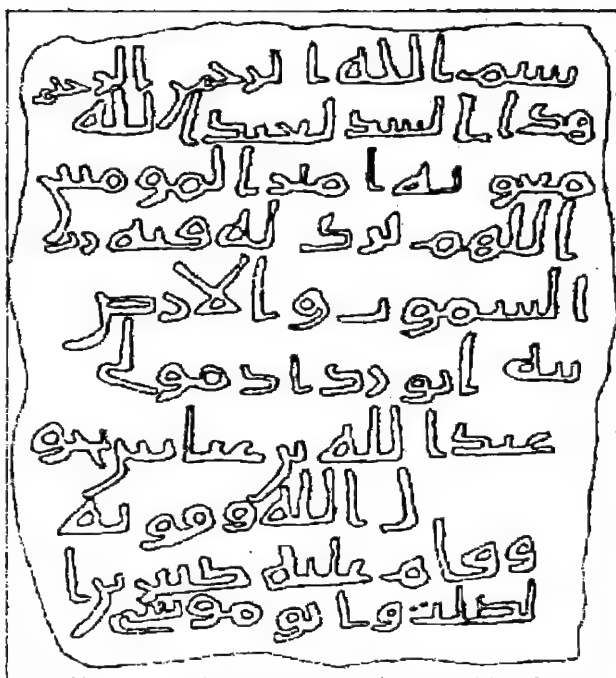 بسم الله الرحمن الرحيم
هذا السد لعبد الله
معويه امير المومنين
اللهم برك له فيه رب
السموت والارض
بنه ابو رداد مولى
عبد الله بن عباس بحو
ل الله وقوته
وقام عليه كثير بن ا
لصلت وابو موسى